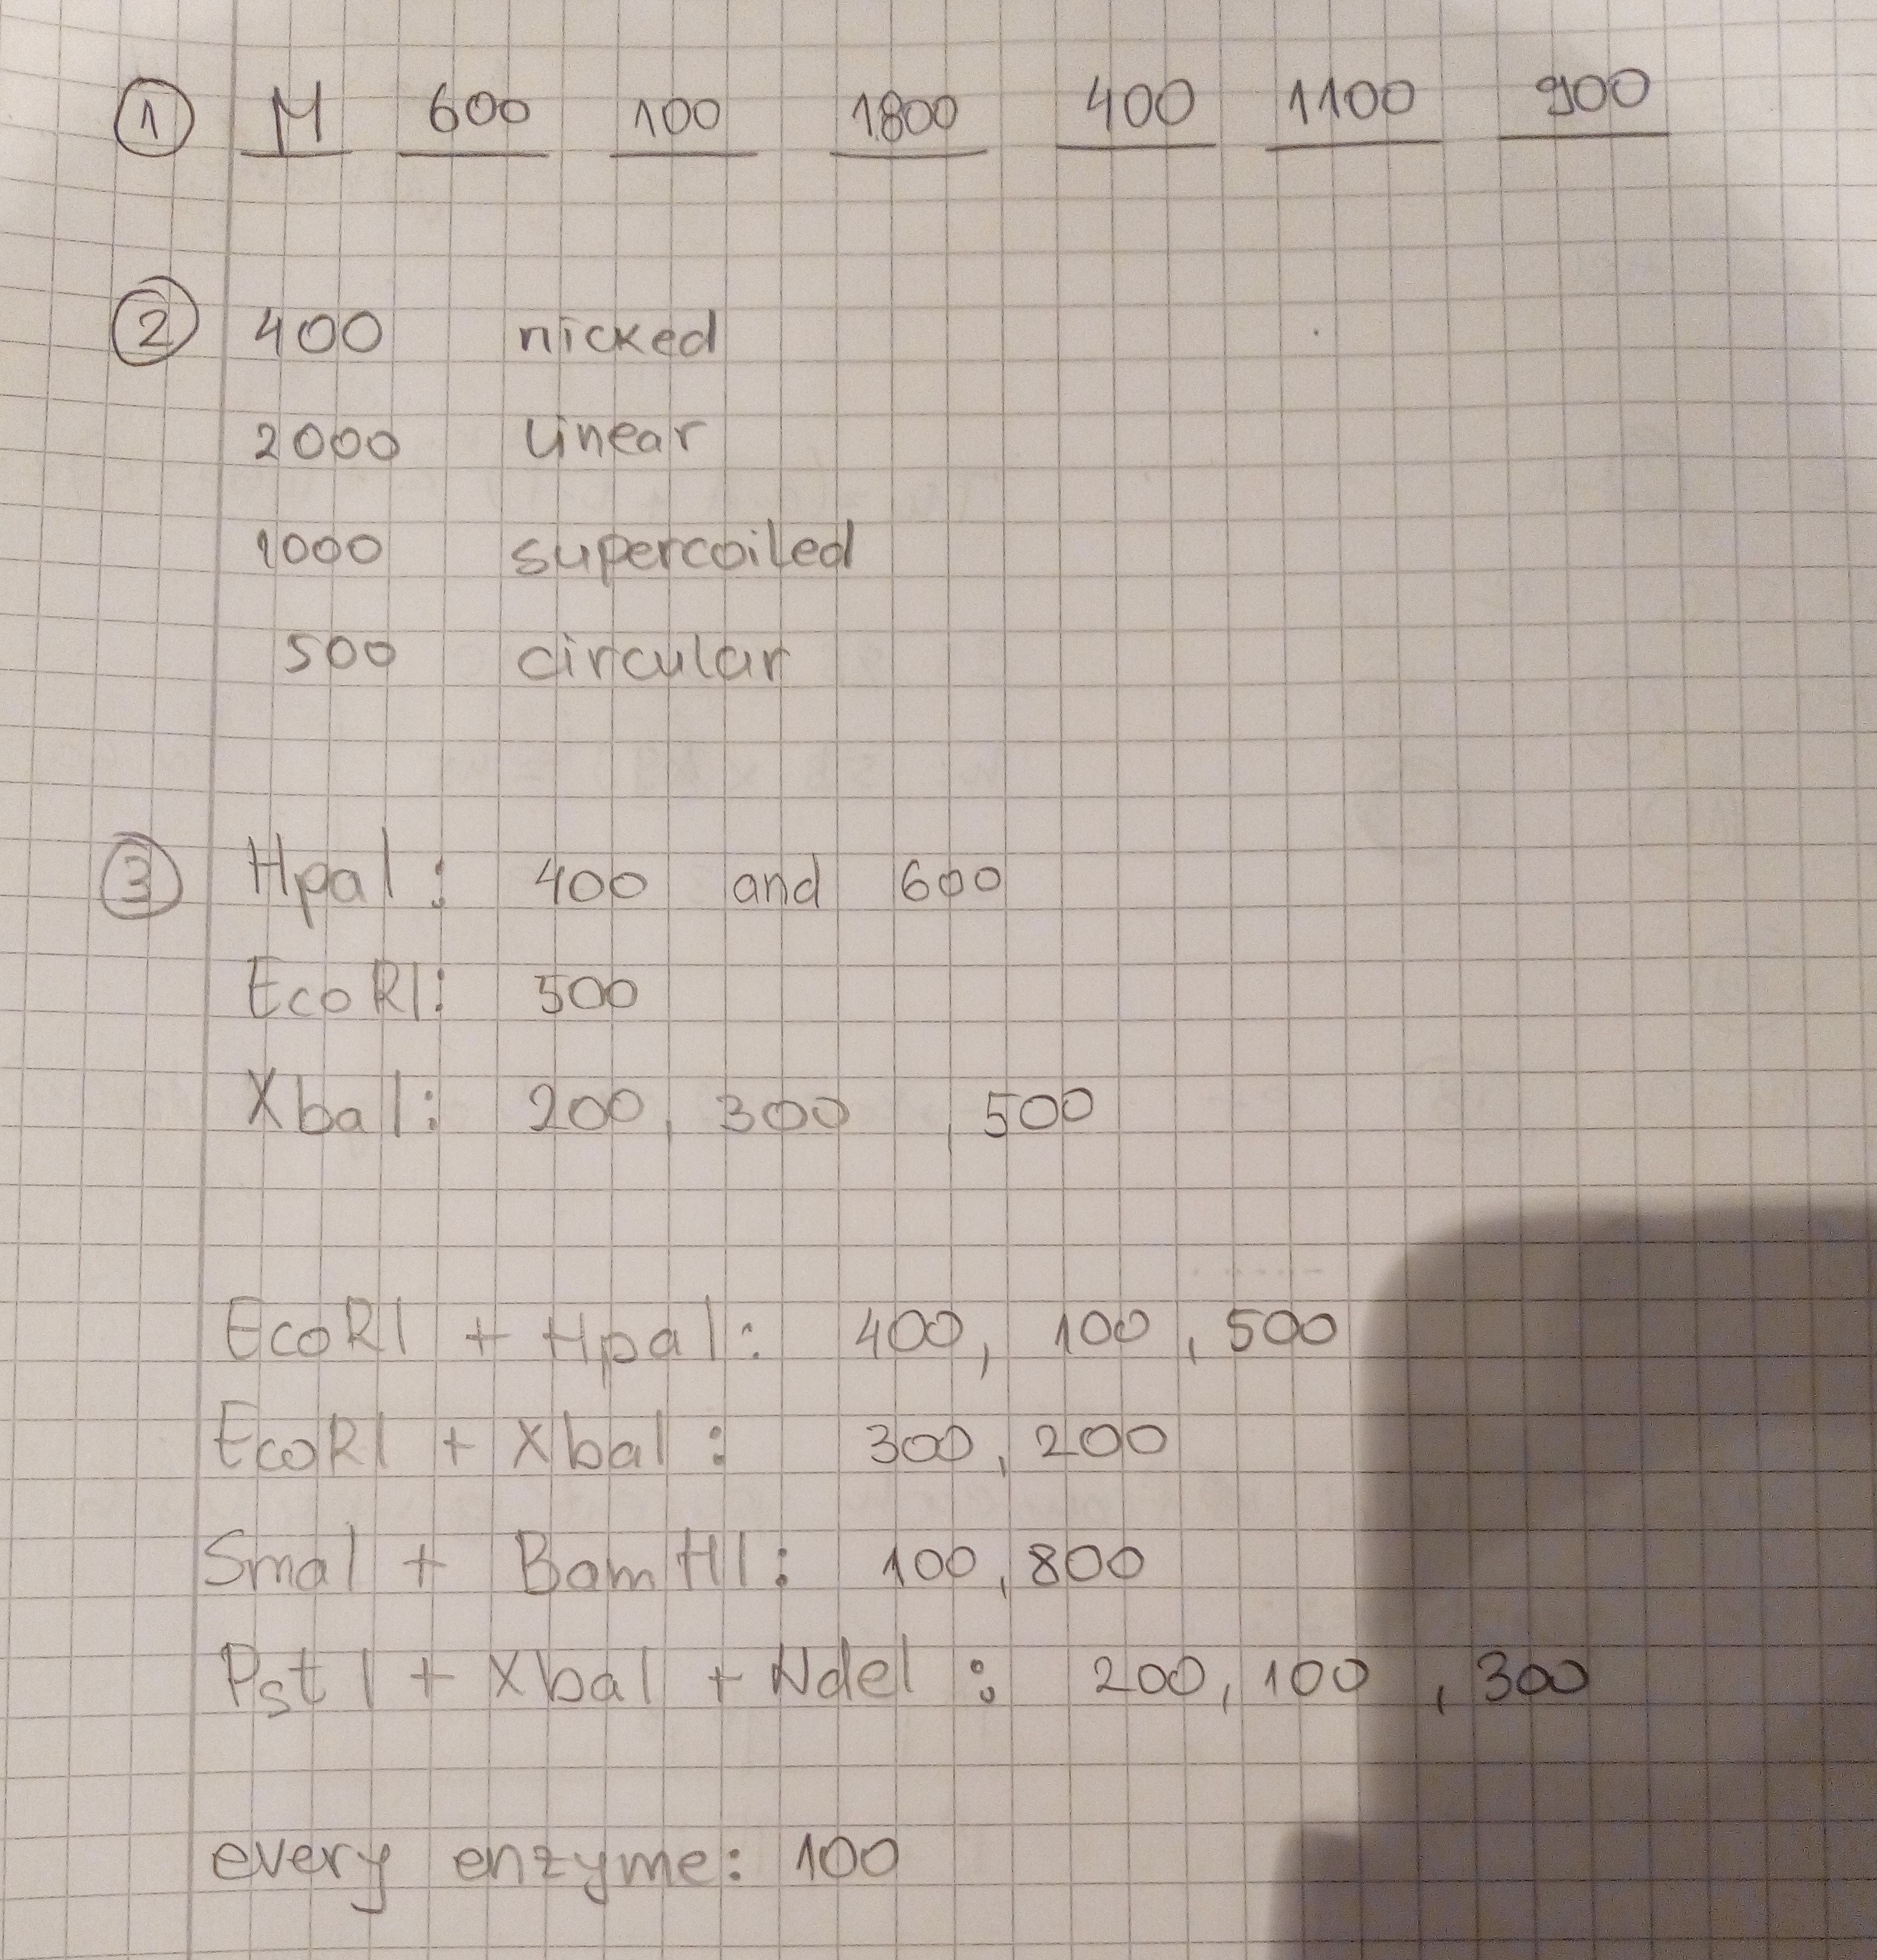 ① M 600 100 1800 400 1100 900
② 400 nicked
2000 linear
1000 supercoiled
500 circular
③ HpaI: 400 and 600
EcoRI: 500
XbaI: 200, 300, 500
EcoRI + HpaI: 400, 100, 500
EcoRI + XbaI: 300, 200
SmaI + BamHI: 100, 800
PstI + XbaI + NdeI: 200, 100, 300
every enzyme: 100